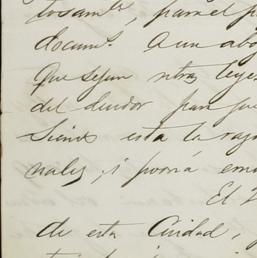 tosamte, para el p
docums. Aun abo
Que segun ntras leye
del deudor para que
siendo esta la razo
nales, si podria emb
El
de esta Ciudad,